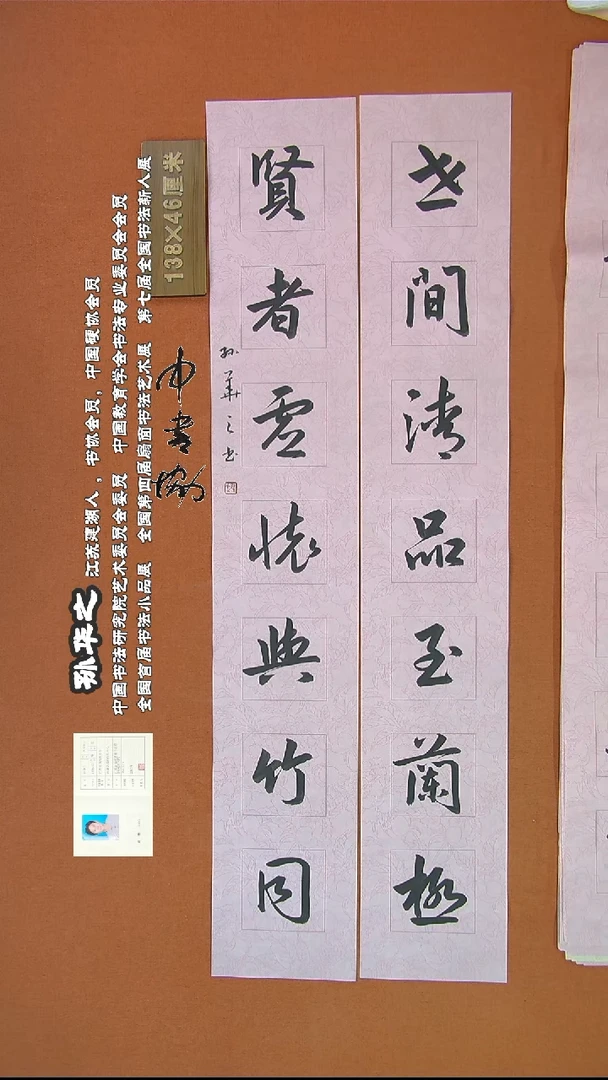 世間清品至蘭極
賢者虛懷與竹同
孫華之書
138×46厘米
中书协
孙华之
江苏建湖人，书协会员，中国硬协会员
中国书法研究院艺术委员会委员 中国教育学会书法专业委员会会员
全国首届书法小品展 全国第四届扇面书法艺术展 第七届全国书法新人展